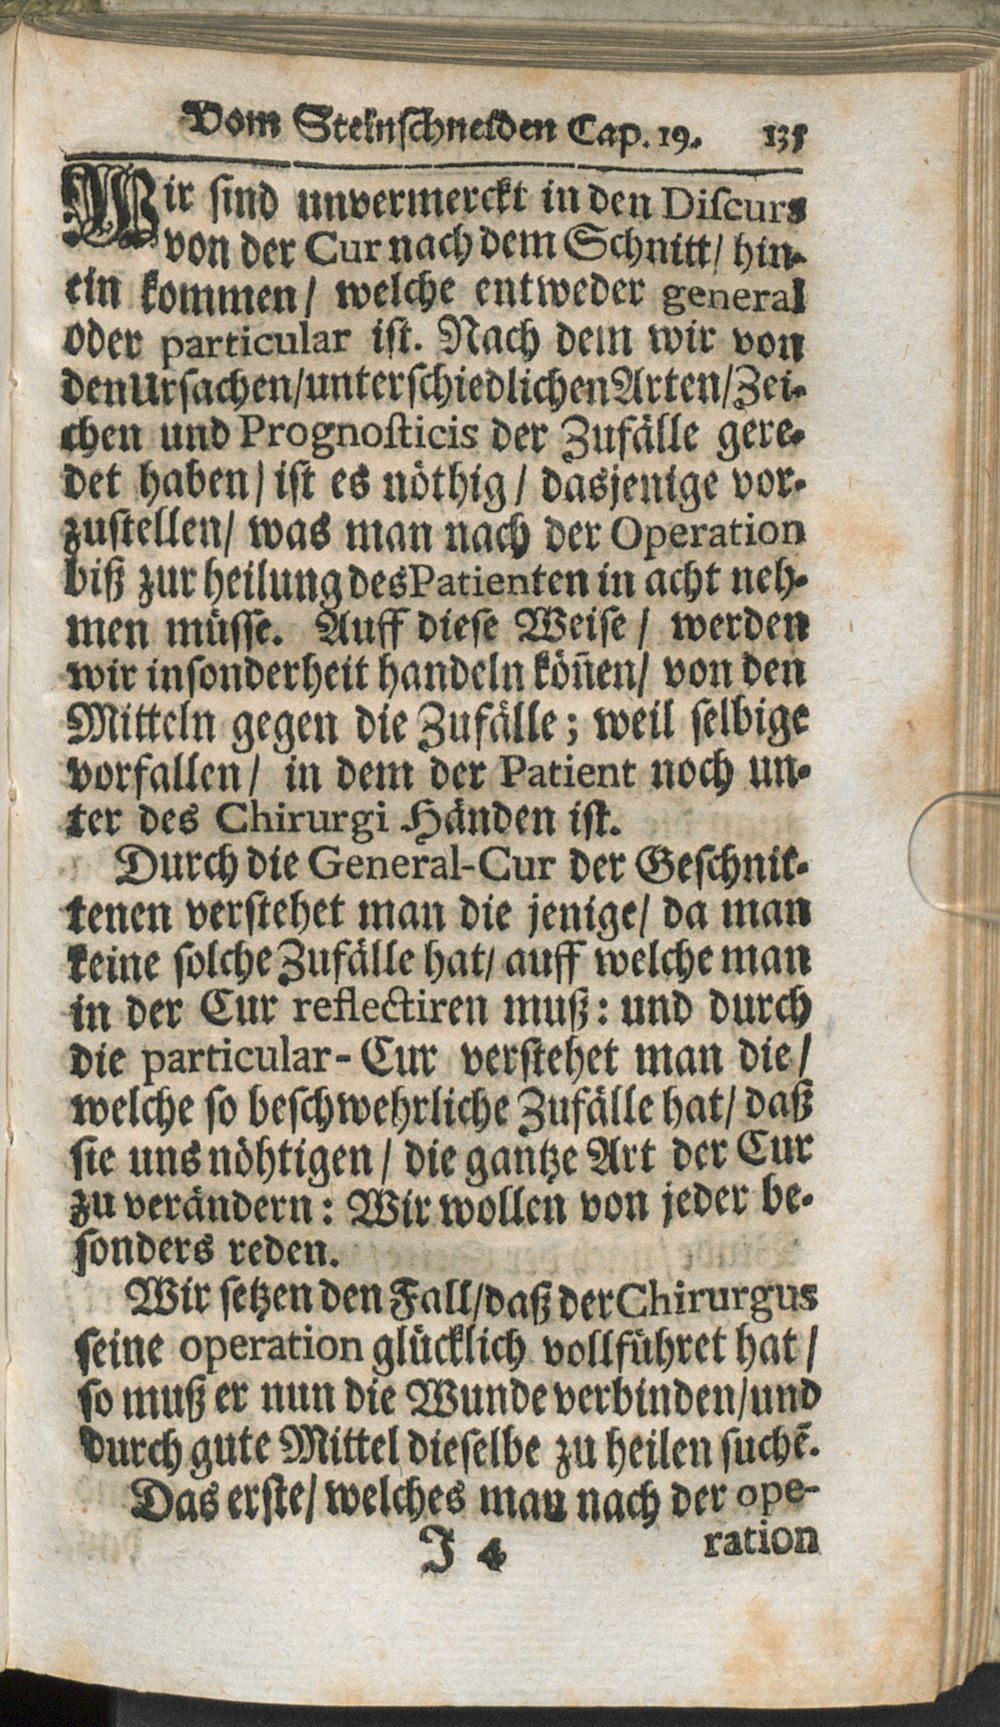 Vom Steinschneiden Cap. 19. 135
Wir sind unvermerckt in den Discurs
von der Cur nach dem Schnitt/ hin-
ein kommen/ welche entweder general
oder particular ist. Nach dem wir von
den Ursachen/unterschiedlichen Arten/Zei-
chen und Prognosticis der Zufälle gere-
det haben/ ist es nöthig/ dasjenige vor-
zustellen/ was man nach der Operation
biß zur heilung des Patienten in acht neh-
men müsse. Auff diese Weise/ werden
wir insonderheit handeln köñen/ von den
Mitteln gegen die Zufälle; weil selbige
vorfallen/ in dem der Patient noch un-
ter des Chirurgi Händen ist.
Durch die General-Cur der Geschnit-
tenen verstehet man die jenige/ da man
keine solche Zufälle hat/ auff welche man
in der Cur reflectiren muß: und durch
die particular-Cur verstehet man die/
welche so beschwehrliche Zufälle hat/ daß
sie uns nöhtigen/ die gantze Art der Cur
zu verändern: Wir wollen von jeder be-
sonders reden.
Wir setzen den Fall/daß der Chirurgus
seine operation glücklich vollführet hat/
so muß er nun die Wunde verbinden/und
durch gute Mittel dieselbe zu heilen suchē.
Das erste/ welches man nach der ope-
J 4 ration